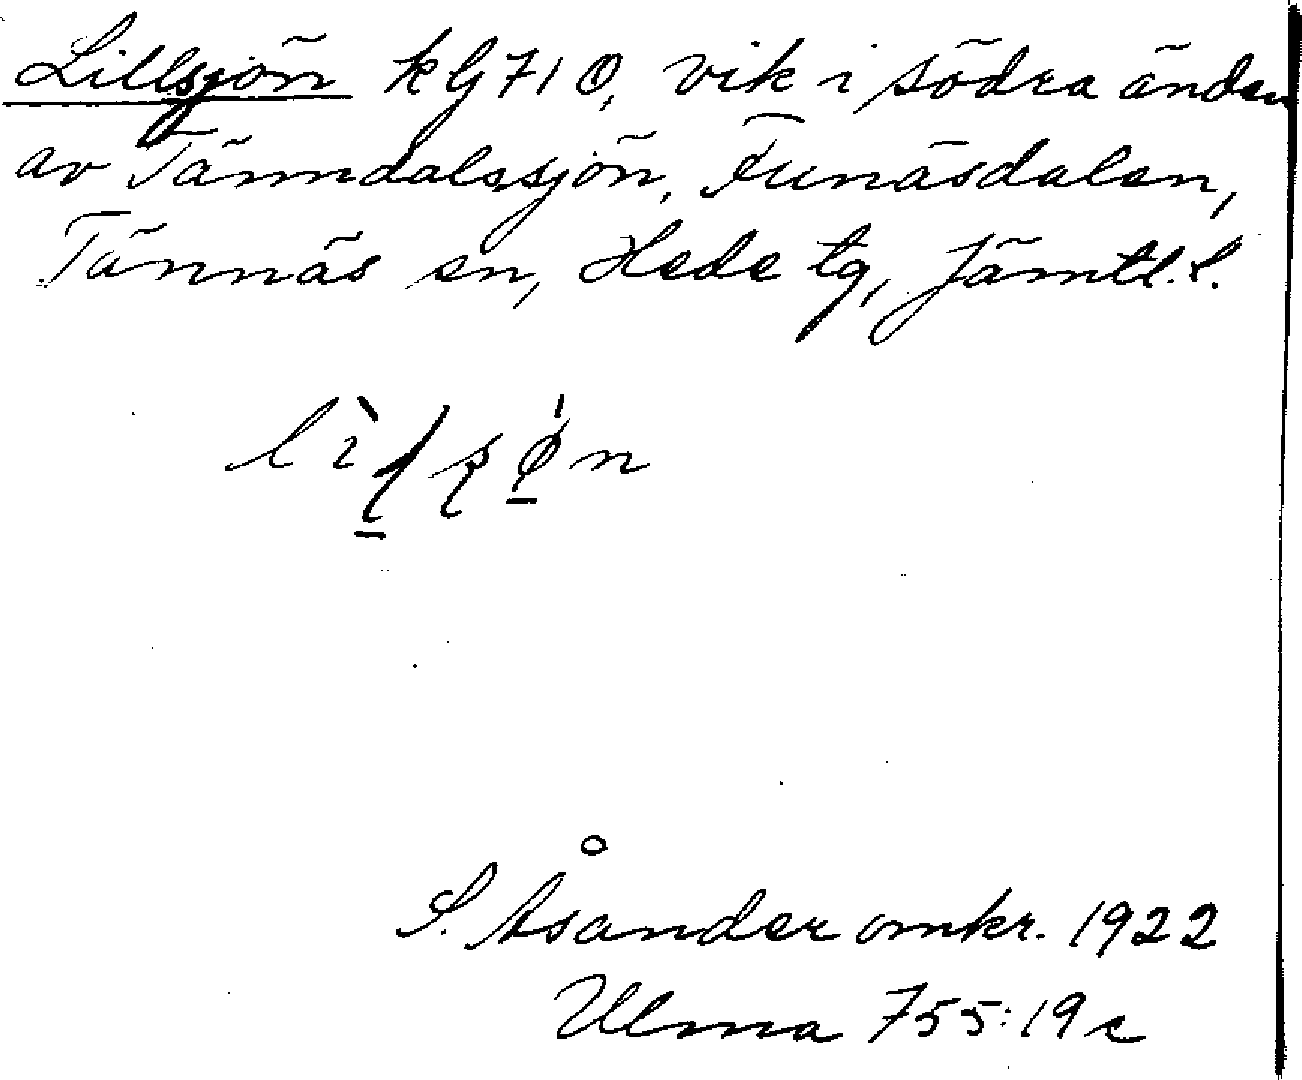 Lillsjön kg 710, vik i södra änden
av Tänndalssjön, Funäsdalen,
Tännäs sn, Hede tg, Jämtl. l.
S. Åsander omkr. 1922
Ulma 755:19c